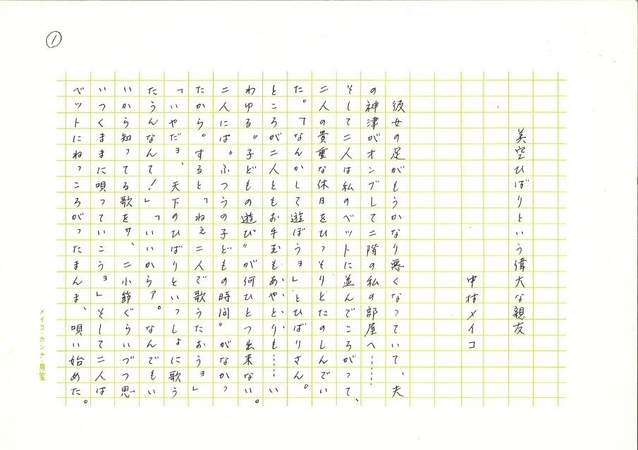 ①
美空ひばりという偉大な親友
中村メイコ
彼女の足がもうかなり悪くなっていて、夫
の神津がオンブして二階の私の部屋へ……
そして二人は私のベットに並んでころがって、
二人の貴重な休日をひっそりとたのしんでい
た。「なんかして遊ぼうョ」とひばりさん。
ところが二人ともお手玉もあやとりも……い
わゆる〝子どもの遊び〟が何ひとつ出来ない。
二人には。ふつうの子どもの時間〟がなかっ
たから。すると「ねぇ二人で歌うたおうョ」
「いやだョ、天下のひばりといっしょに歌う
たうんなんて！」「いいからァ。なんでもい
いから知ってる歌をサ、二小節ぐらいづつ思
いつくままに唄っていこうョ」そして二人は
ベットにねっころがったまんま、唄い始めた。
メイコ・カンナ・用箋